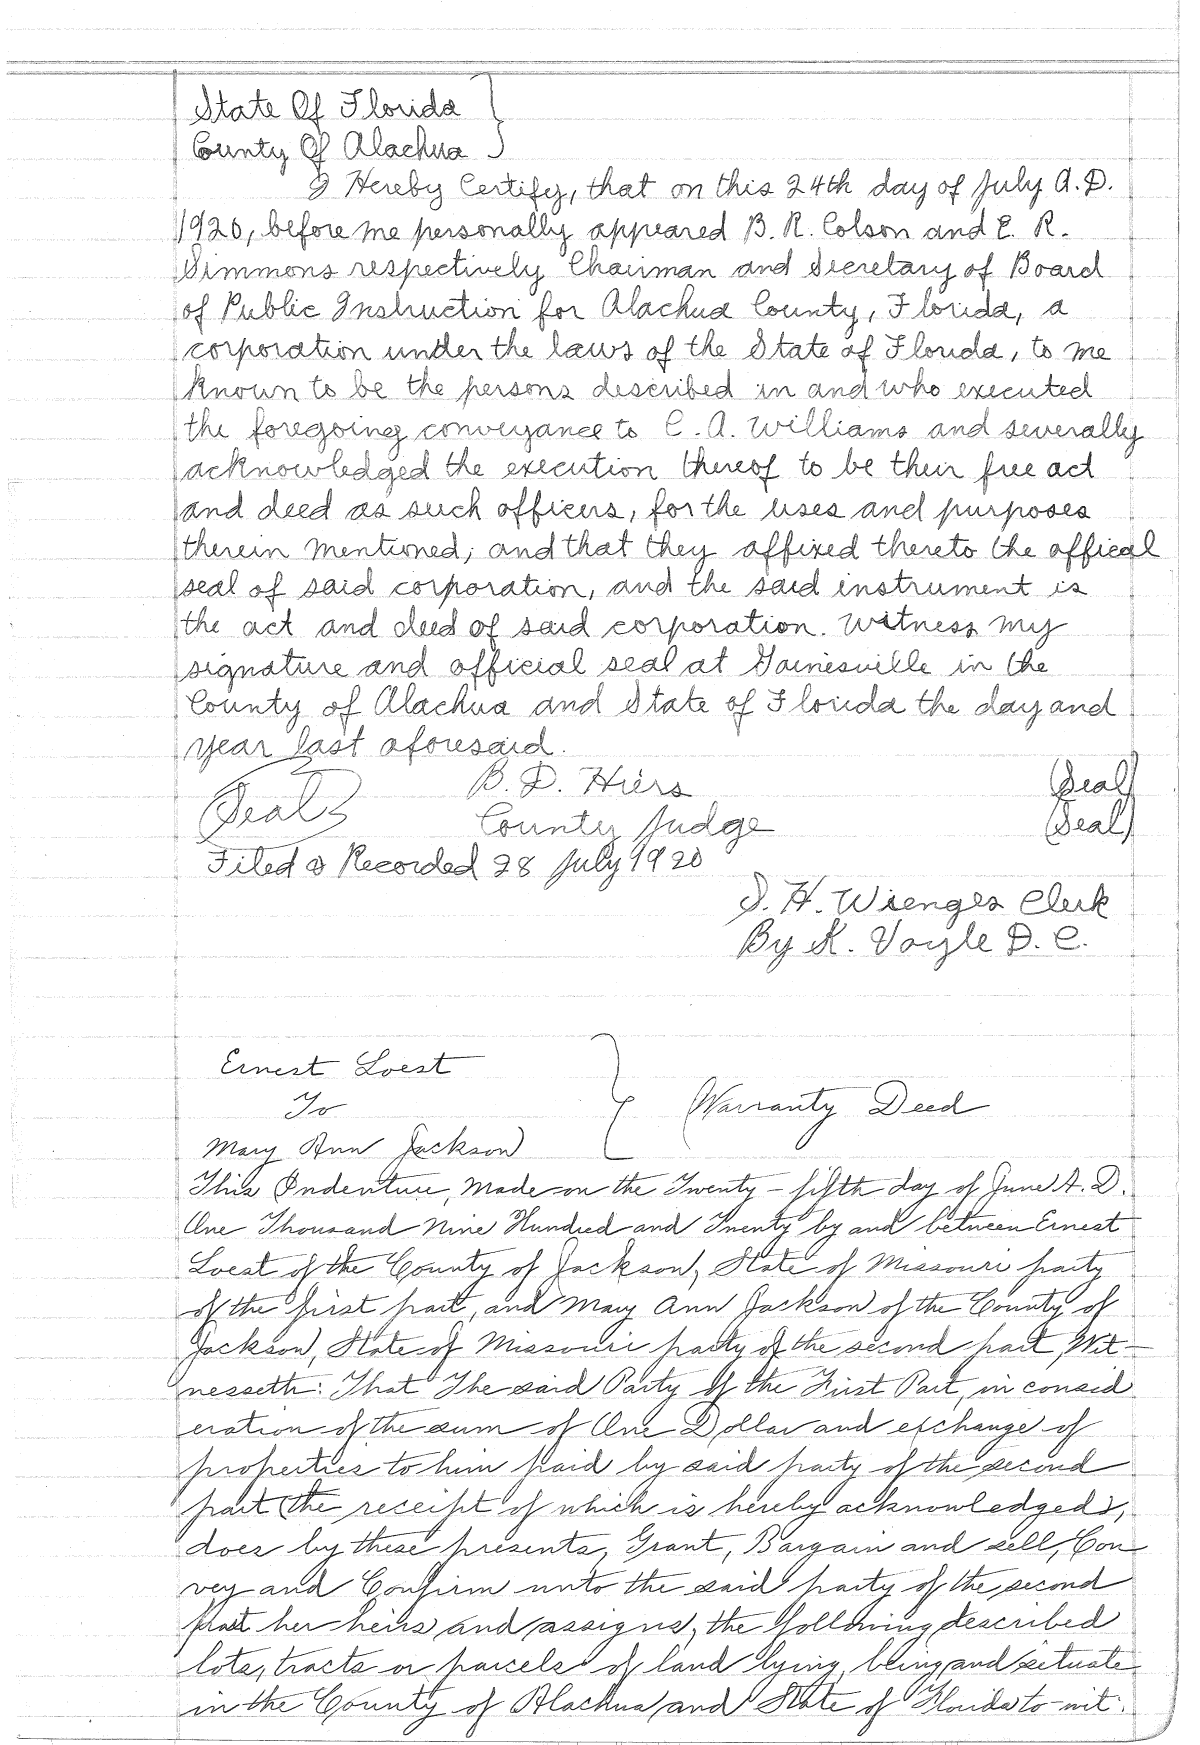 State Of Florida
County Of Alachua
I Hereby Certify, that on this 24th day of July A.D.
1920, before me personally appeared B. R. Colson and E. R.
Simmons respectively Chairman and Secretary of Board
of Public Instruction for Alachua County, Florida, a
corporation under the laws of the State of Florida, to me
known to be the persons described in and who executed
the foregoing conveyance to C. A. Williams and severally
acknowledged the execution thereof to be their free act
and deed as such officers, for the uses and purposes
therein mentioned; and that they affixed thereto the offical
seal of said corporation, and the said instrument is
the act and deed of said corporation. Witness my
signature and official seal at Gainesville in the
County of Alachua and State of Florida the day and
year last aforesaid.
B. D. Hiers (Seal)
(Seal) County Judge (Seal)
Filed & Recorded 28 July 1920
S. H. Wienges Clerk
By K. Voyle D. C.
Ernest Loest
To
Warranty Deed
Mary Ann Jackson
This Indenture, Made on the Twenty-fifth day of June A. D.
One Thousand Nine Hundred and Twenty by and between Ernest
Loest of the County of Jackson, State of Missouri party
of the first part, and Mary Ann Jackson of the County of
Jackson, State of Missouri party of the second part, Wit-
nesseth: That The said Party of the First Part, in consid
eration of the sum of One Dollar and exchange of
properties to him paid by said party of the second
part (the receipt of which is hereby acknowledged),
does by these presents, Grant, Bargain and sell, Con-
vey and Confirm unto the said party of the second
part her heirs and assigns, the following described
lots, tracts or parcels of land lying, being and situate
in the County of Alachua and State of Florida to-wit: